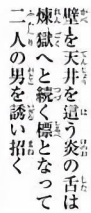 壁を天井を這う炎の舌は
煉獄へと続く標となって
二人の男を誘い招く